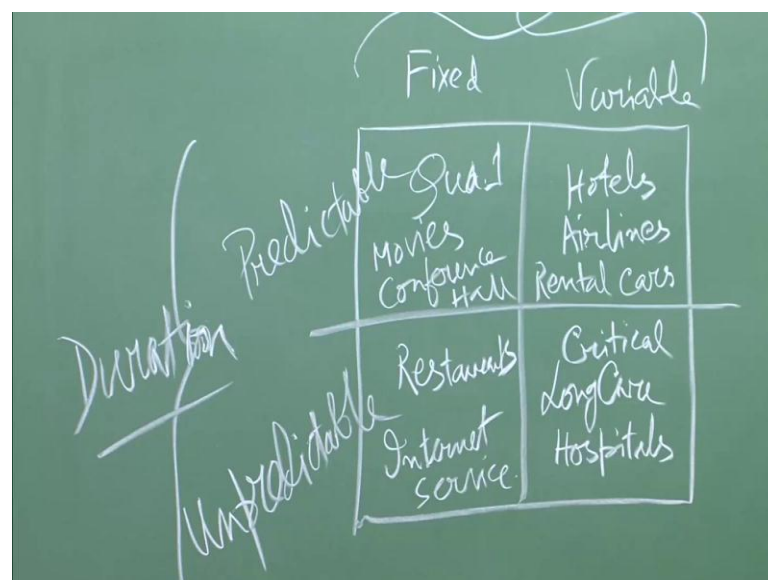 Fixed Variable
Predictable
Quad 1
Movies
Conference
Hall
Hotels
Airlines
Rental Cars
Duration
Unpredictable
Restaurants
Internet
service.
Critical
Long Care
Hospitals